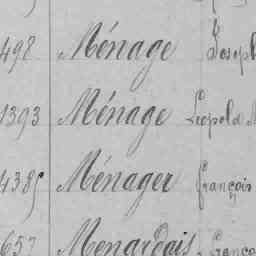 498 Ménage Joseph
1393 Ménage Léopold
4385 Ménager François
657 Menardais